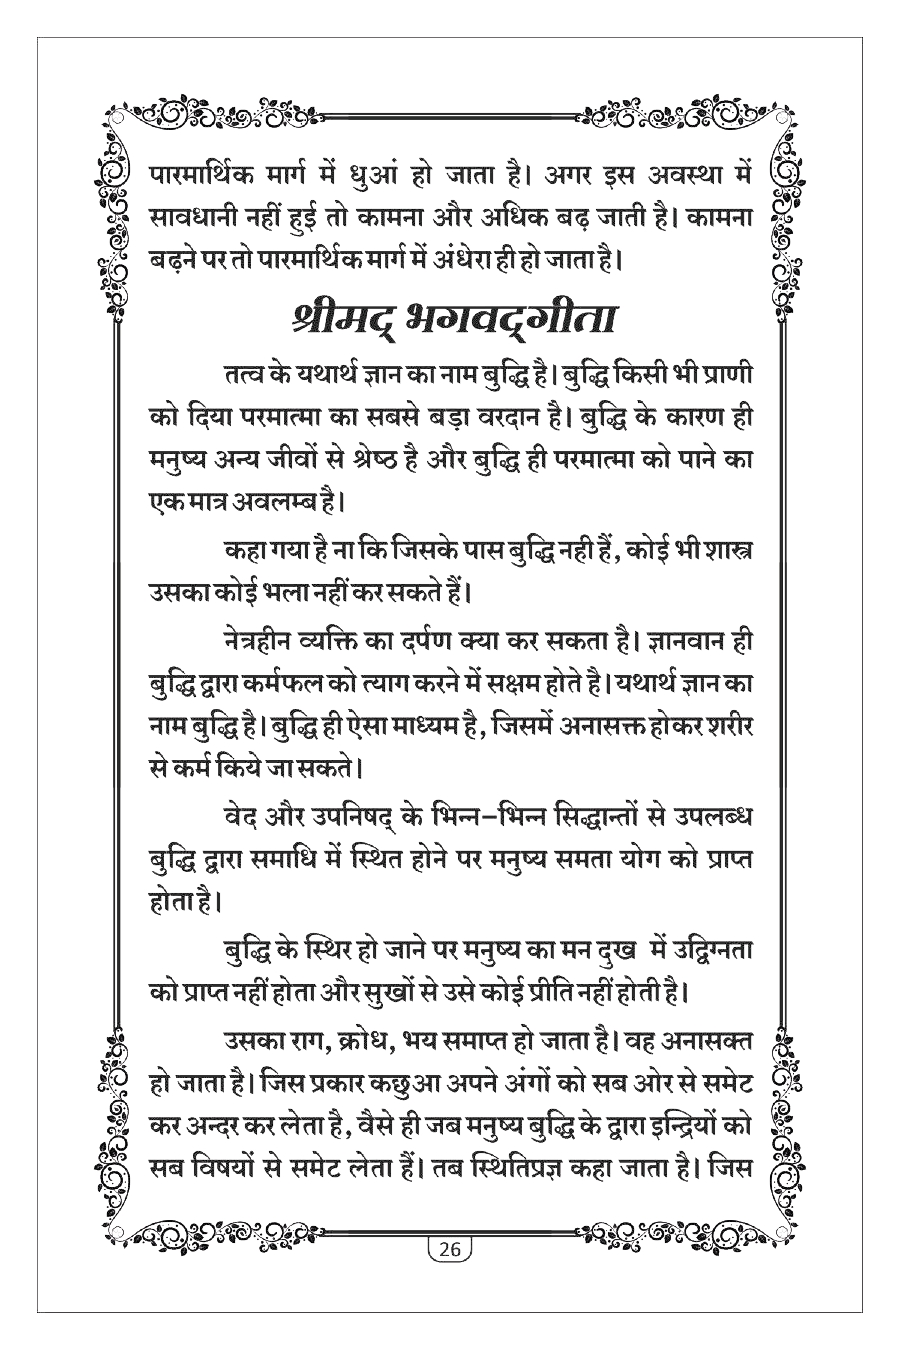 पारमार्थिक मार्ग में धुआं हो जाता है। अगर इस अवस्था में
सावधानी नहीं हुई तो कामना और अधिक बढ़ जाती है। कामना
बढ़ने पर तो पारमार्थिक मार्ग में अंधेरा ही हो जाता है।
श्रीमद् भगवद्गीता
तत्व के यथार्थ ज्ञान का नाम बुद्धि है। बुद्धि किसी भी प्राणी
को दिया परमात्मा का सबसे बड़ा वरदान है। बुद्धि के कारण ही
मनुष्य अन्य जीवों से श्रेष्ठ है और बुद्धि ही परमात्मा को पाने का
एक मात्र अवलम्ब है।
कहा गया है ना कि जिसके पास बुद्धि नही हैं, कोई भी शास्त्र
उसका कोई भला नहीं कर सकते हैं।
नेत्रहीन व्यक्ति का दर्पण क्या कर सकता है। ज्ञानवान ही
बुद्धि द्वारा कर्मफल को त्याग करने में सक्षम होते है। यथार्थ ज्ञान का
नाम बुद्धि है। बुद्धि ही ऐसा माध्यम है, जिसमें अनासक्त होकर शरीर
से कर्म किये जा सकते।
वेद और उपनिषद् के भिन्न–भिन्न सिद्धान्तों से उपलब्ध
बुद्धि द्वारा समाधि में स्थित होने पर मनुष्य समता योग को प्राप्त
होता है।
बुद्धि के स्थिर हो जाने पर मनुष्य का मन दुख में उद्विग्नता
को प्राप्त नहीं होता और सुखों से उसे कोई प्रीति नहीं होती है।
उसका राग, क्रोध, भय समाप्त हो जाता है। वह अनासक्त
हो जाता है। जिस प्रकार कछुआ अपने अंगों को सब ओर से समेट
कर अन्दर कर लेता है, वैसे ही जब मनुष्य बुद्धि के द्वारा इन्द्रियों को
सब विषयों से समेट लेता हैं। तब स्थितिप्रज्ञ कहा जाता है। जिस
26